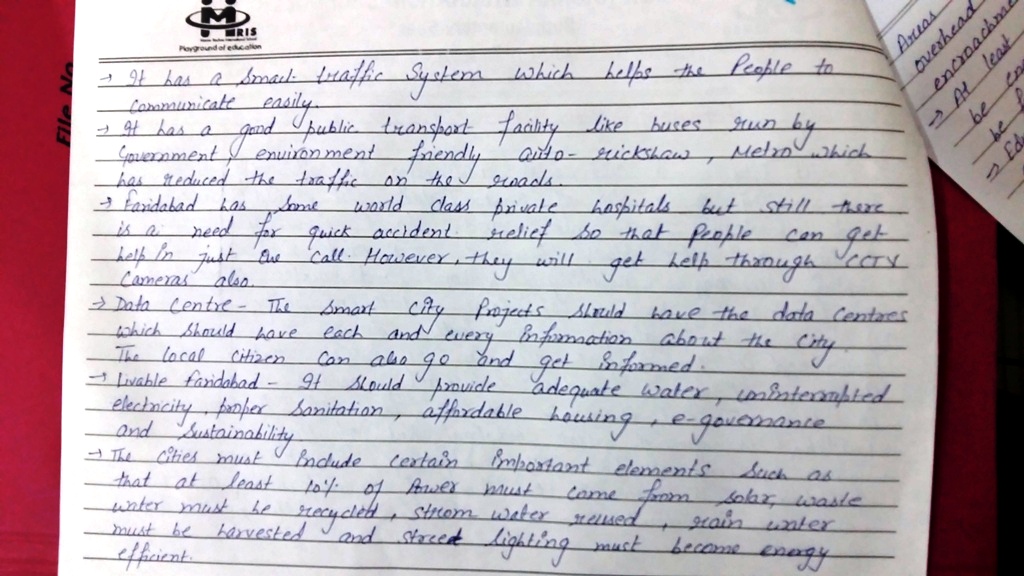 MRIS
Playground of education
File No
→ It has a Smart traffic System which helps the People to
Communicate easily.
→ It has a good public transport facility like buses run by
Government, environment friendly auto-rickshaw, Metro which
has reduced the traffic on the roads.
→ Faridabad has some world class private hospitals but still there
is a need for quick accident relief so that People can get
help In just One Call. However, they will get help through CCTV
Cameras also.
→ Data Centre - The smart city Projects should have the data centres
which should have each and every information about the city.
The local citizen can also go and get informed.
→ Livable Faridabad - It should provide adequate water, uninterrupted
electricity, proper sanitation, affordable housing, e-governance
and sustainability
→ The cities must Include certain important elements such as
that at least 10% of Power must come from solar, waste
water must be recycled, strom water reused, rain water
must be harvested and street lighting must become energy
efficient.
Areas
overhead
→ At least
be
be